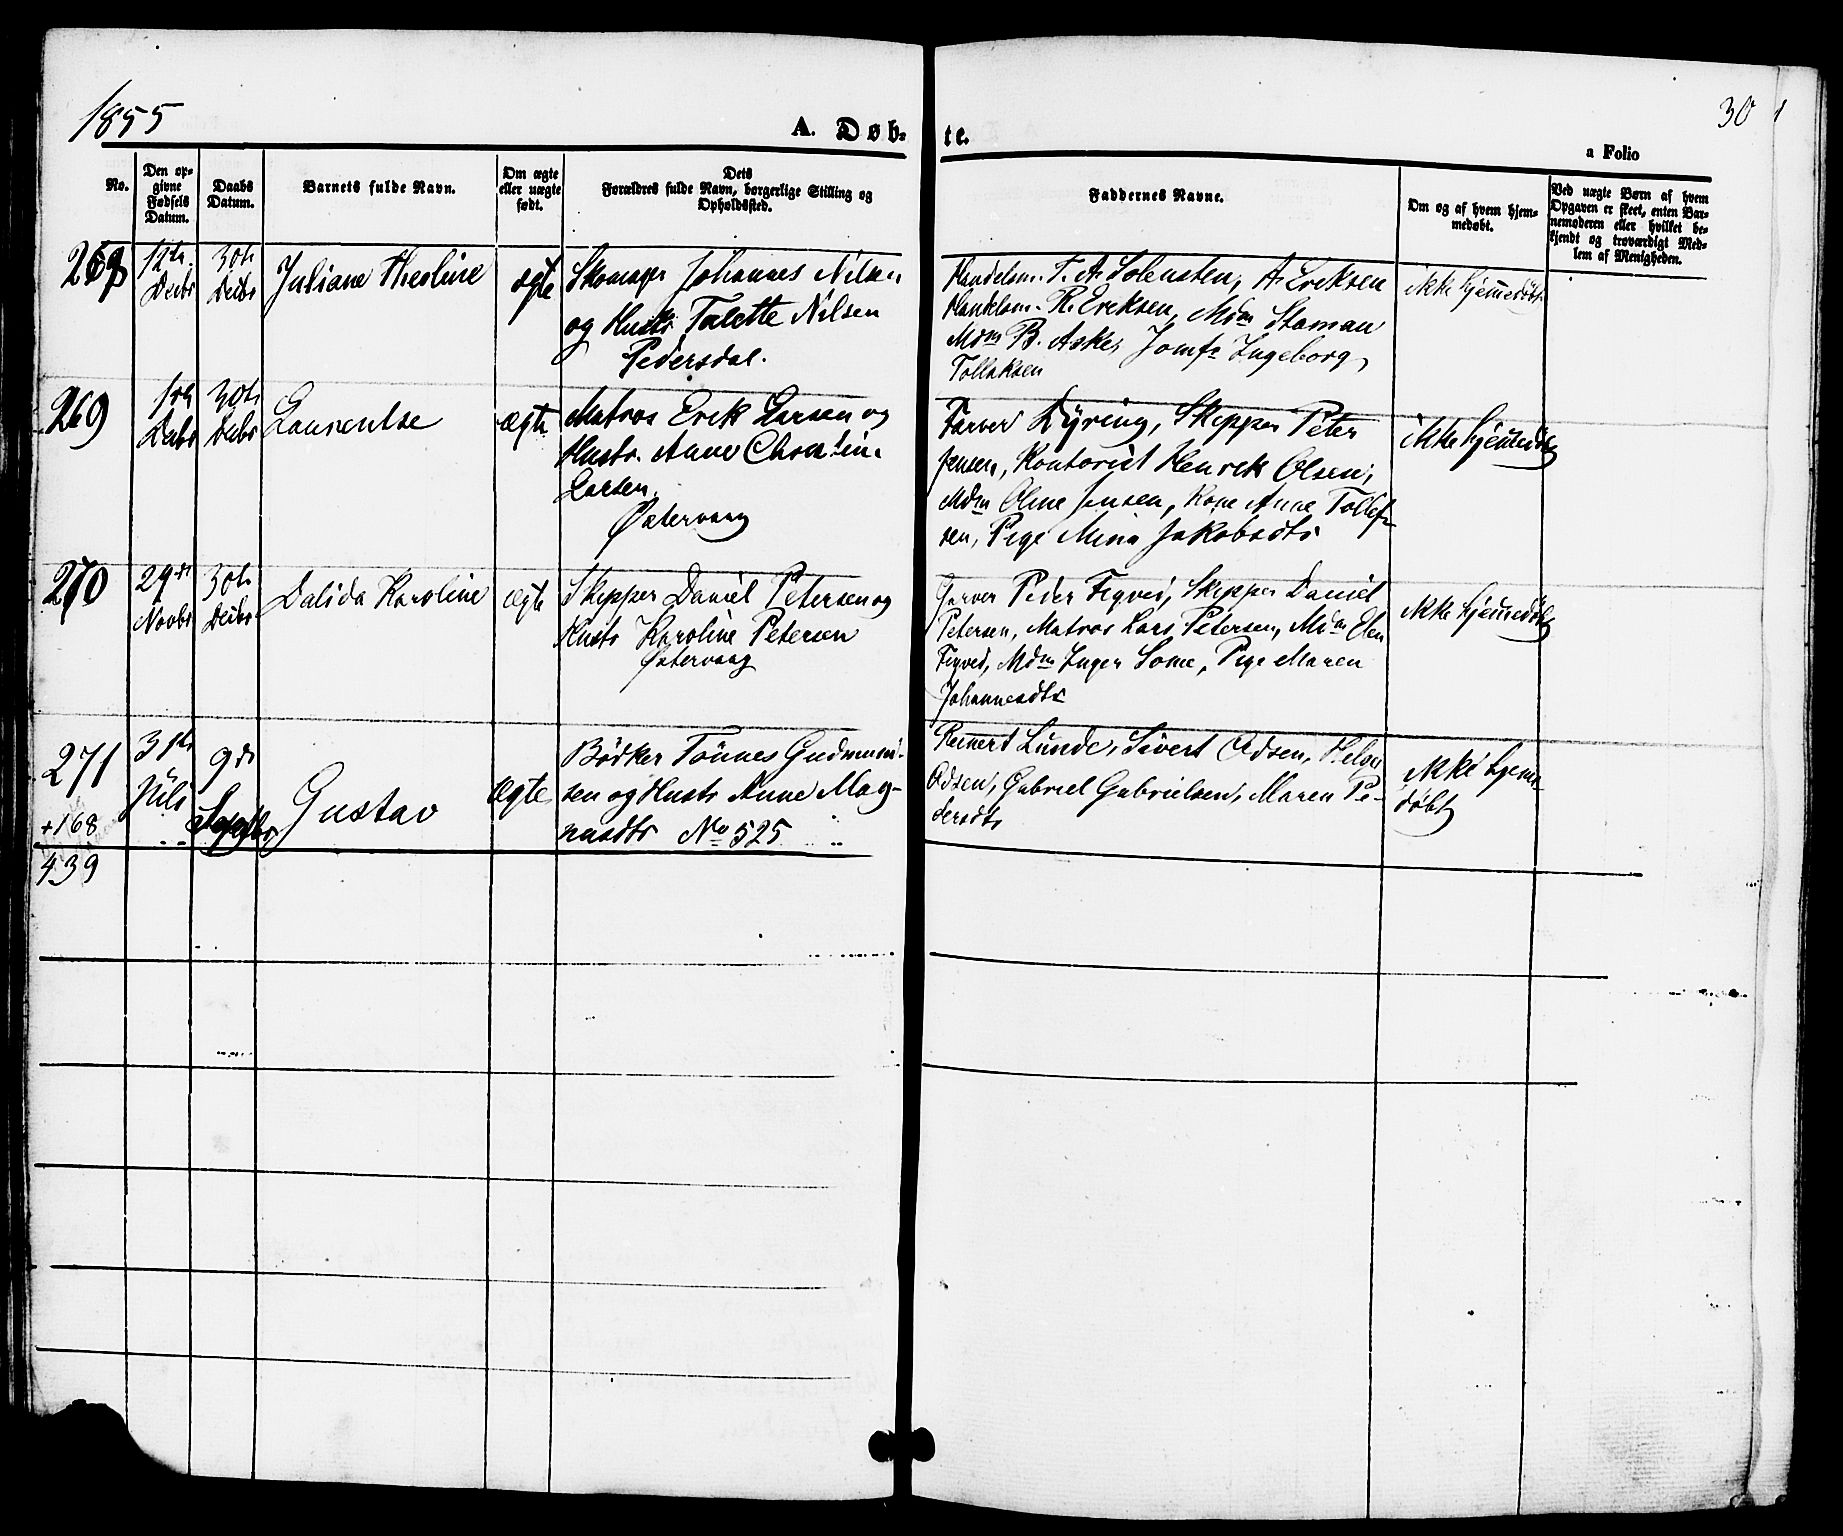 1855
A. Døb-
te.
30
a Folio
No.
Den op-
givne
Fødsels
Datum.
Daabs
Datum.
Barnets fulde Navn.
Om ægte
eller uægte
født.
Dets
Forældres fulde Navn, borgerlige Stilling og
Opholdssted.
Faddernes Navne.
Om og af hvem hjem-
medøbt.
Ved uægte Børn af hvem
Opgaven er skeet, enten Bar-
nemoderen eller hvilket be-
kjendt og troværdigt Med-
lem af Menigheden.
268
Decbr
30te
Decbr
Juliane Theoline
ægte
Skomager Johannes Nilsen
og Hustr Talette Nilsen
Pedersdal.
Handelsm. T. A. Solensten, A. Ereksen
Handelsm. R. Ereksen, Mdm Staman
Mdm B. Aske, Jomfr Ingeborg
Tollaksen
ikke hjemmedøbt
269
1ste
Decbr
30te
Decbr
Laurentse
ægte
Matros Erek Larsen og
Hustr. Anne Christine
Larsen.
Østervaag
Farver Dyring, Skipper Peter
Jensen, Kontorist Henrik Olsen,
Mdm Oline Jensen, Kone Anne Tollef-
sen, Pige Mina Jakobsdtr
ikke hjemmedøbt
270
29de
Novbr
30te
Decbr
Dalida Karoline
ægte
Skipper Daniel Petersen og
Hustr Karoline Petersen
Østervaag
Garver Peder Figved, Skipper Daniel
Petersen, Matros Lars Petersen, Mdm Elen
Figved, Mdm Inger Some, Pige Maren
Johannesdtr
ikke hjemmedøbt
271
31te
Juli
9de
Septbr
Gustav
ægte
Bödker Tönnes Gudmund-
sen og Hustr Anne Mag-
nusdtr No 525
Reinert Lunde, Sivert Odsen, Helge
Odsen, Gabriel Gabrielsen, Maren Pe-
dersdtr
ikke hjem-
døbt
+168
439